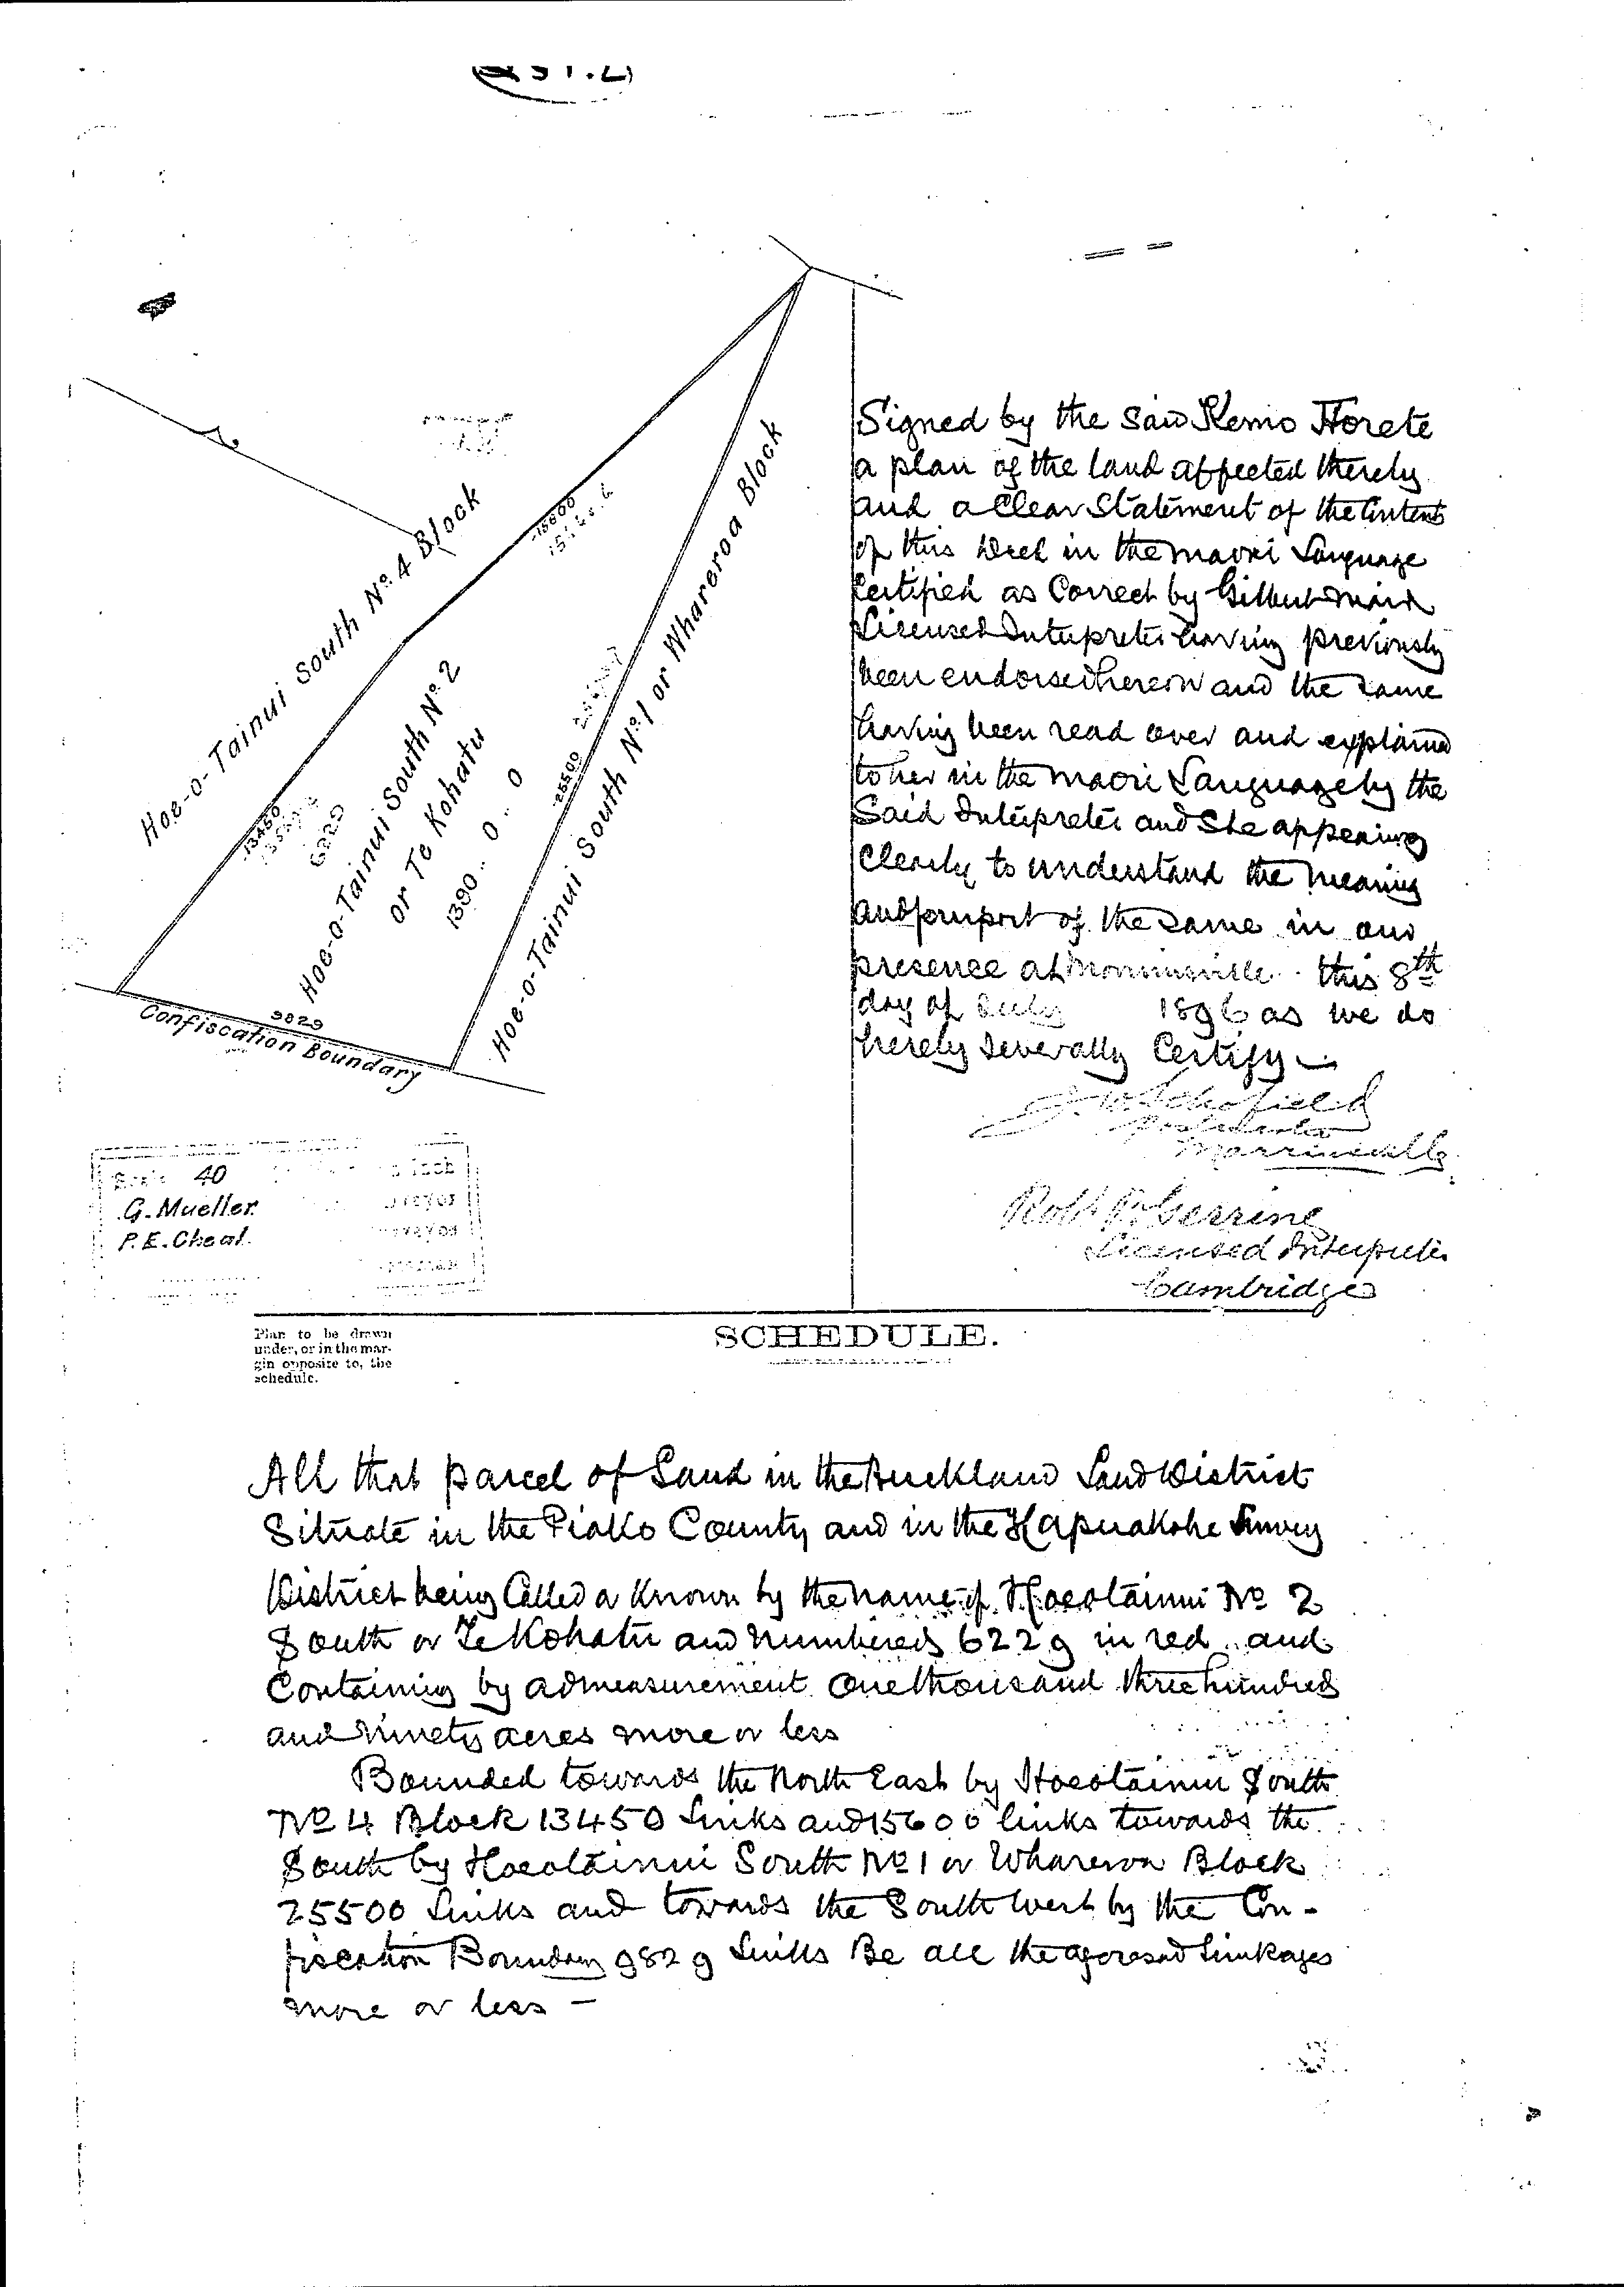 Hoe-o-Tainui South No. 4 Block
15600
13450
6229
Hoe-o-Tainui South No. 2
or Te Kohatu
1390.. 0.. 0
25500
Hoe-o-Tainui South No. 1 or Whareroa Block
9829
Confiscation Boundary
Signed by the said Remo Horete
a plan of the land affected thereby
and a Clear Statement of the Contents
of this Deed in the maori Language
Certified as Correct by Gilbert Mair
Licensed Interpreter having previously
been endorsed hereon and the same
having been read over and explained
to her in the maori Language by the
Said Interpreter and She appearing
Clearly to understand the meaning
and purport of the same in our
presence at Morrinsville this 8th
day of July 1896 as we do
hereby severally Certify
J. W. Schofield
Postmaster
Morrinsville
Licensed Interpreter
Cambridge
Scale 40 Inch
G. Mueller
P. E. Cheal
Plan to be drawn
under, or in the mar-
gin opposite to, the
schedule.
SCHEDULE.
All that parcel of Land in the Auckland Land District
Situate in the Piako County and in the Hapuakohe Survey
District being Called or Known by the name of Hoeotainui No 2
South or Te Kohatu and numbered 6229 in red and
Containing by admeasurement One thousand three hundred
and Ninety acres more or less
Bounded towards the North East by Hoeotainui South
No 4 Block 13450 Links and 15600 links towards the
South by Hoeotainui South No 1 or Whareroa Block
25500 Links and towards the South West by the Con-
fiscation Boundary 9829 Links Be all the aforesaid Linkages
more or less -